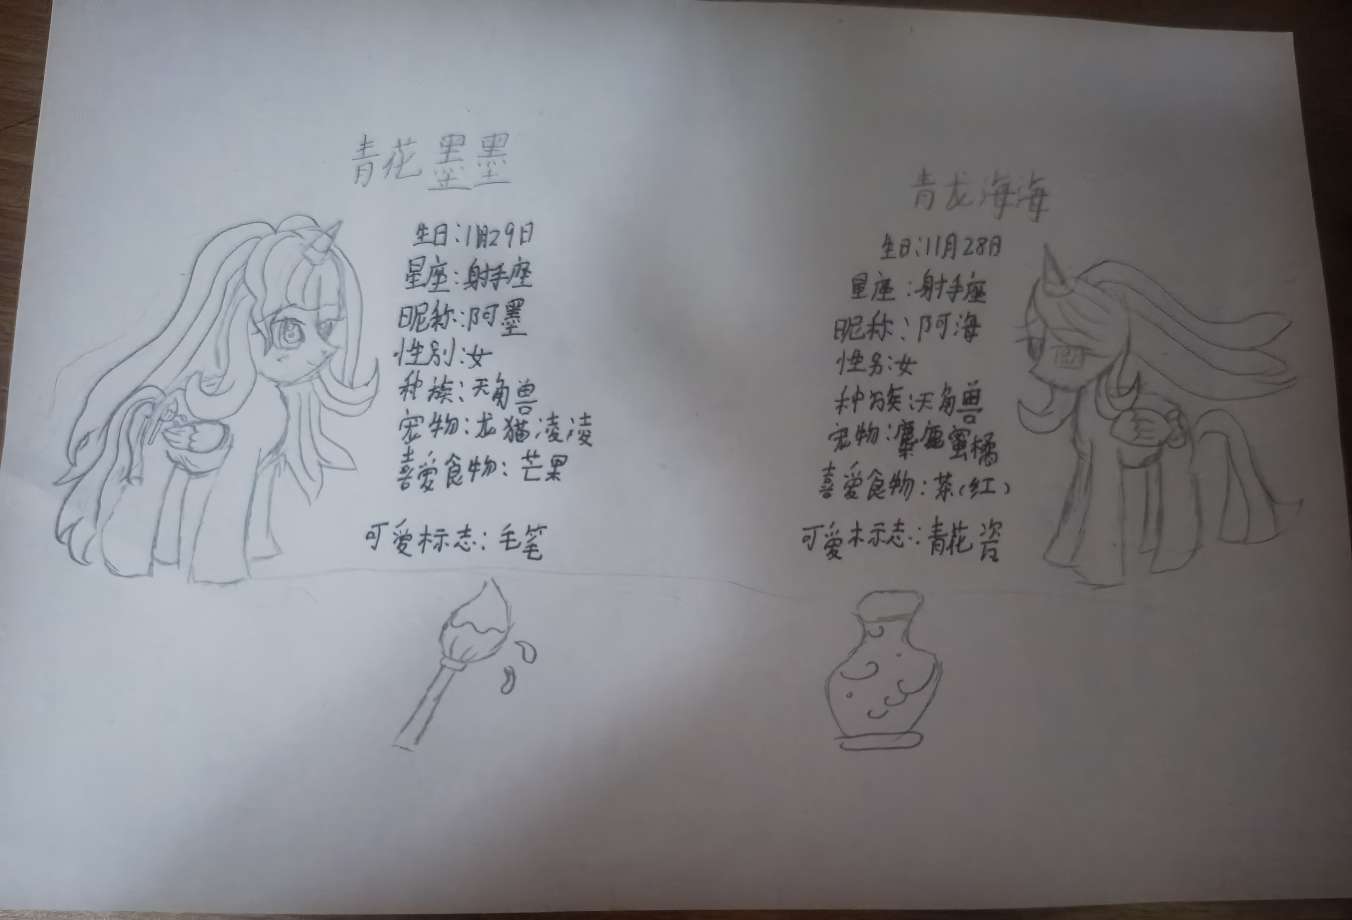 青花墨墨
生日:11月29日
星座:射手座
昵称:阿墨
性别:女
种族:天角兽
宠物:龙猫凌凌
喜爱食物:芒果
可爱标志:毛笔
青龙海海
生日:11月28日
星座:射手座
昵称:阿海
性别:女
种族:天角兽
宠物:麋鹿蜜橘
喜爱食物:茶(红)
可爱标志:青花咨